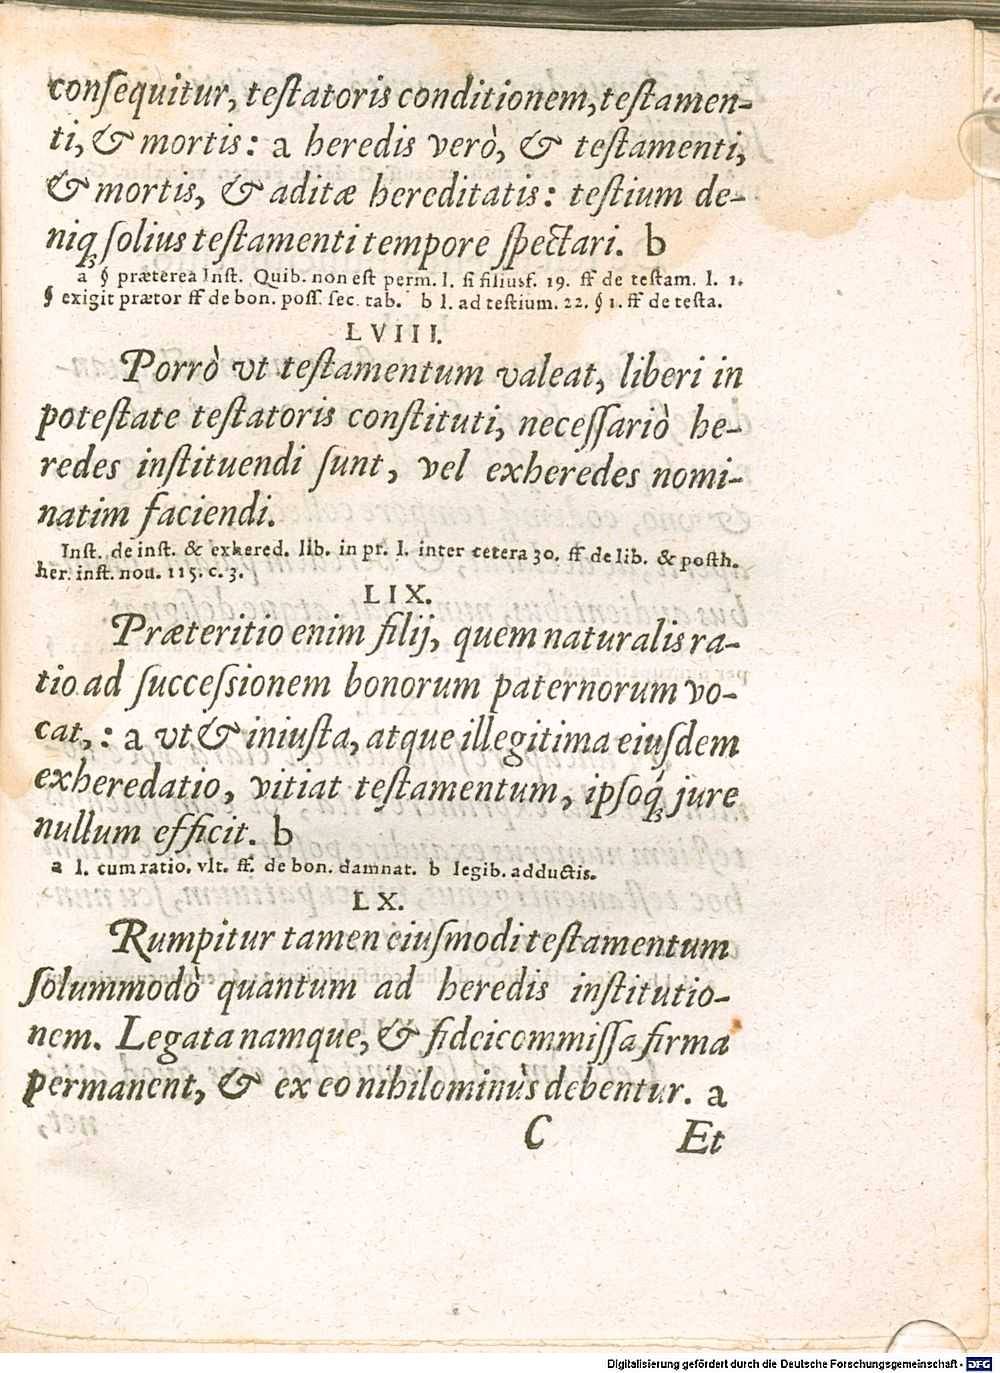 conſequitur, teſtatoris conditionem, teſtamen-
ti, & mortis: a heredis verò, & teſtamenti,
& mortis, & aditæ hereditatis: teſtium de-
niq́ ſolius teſtamenti tempore ſpectari. b
a § præterea Inſt. Quib. non eſt perm. l. ſi filiusf. 19. ff de teſtam. l. 1.
§ exigit prætor ff de bon. poſſ. ſec. tab. b l. ad teſtium. 22. § 1. ff de teſta.
LVIII.
Porrò vt teſtamentum valeat, liberi in
poteſtate teſtatoris conſtituti, neceſſariò he-
redes inſtituendi ſunt, vel exheredes nomi-
natim faciendi.
Inſt. de inſt. & exhered. lib. in pr. l. inter cetera 30. ff de lib. & poſth.
her. inſt. nou. 115. c. 3.
LIX.
Præteritio enim filij, quem naturalis ra-
tio ad ſucceſsionem bonorum paternorum vo-
cat,: a vt & iniuſta, atque illegitima eiuſdem
exheredatio, vitiat teſtamentum, ipſoq́ jure
nullum efficit. b
a l. cum ratio. vlt. ff. de bon. damnat. b legib. adductis.
LX.
Rumpitur tamen eiuſmodi teſtamentum
ſolummodò quantum ad heredis inſtitutio-
nem. Legata namque, & fideicommiſſa firma
permanent, & ex eo nihilominùs debentur. a
C Et
Digitalisierung gefördert durch die Deutsche Forschungsgemeinschaft - DFG